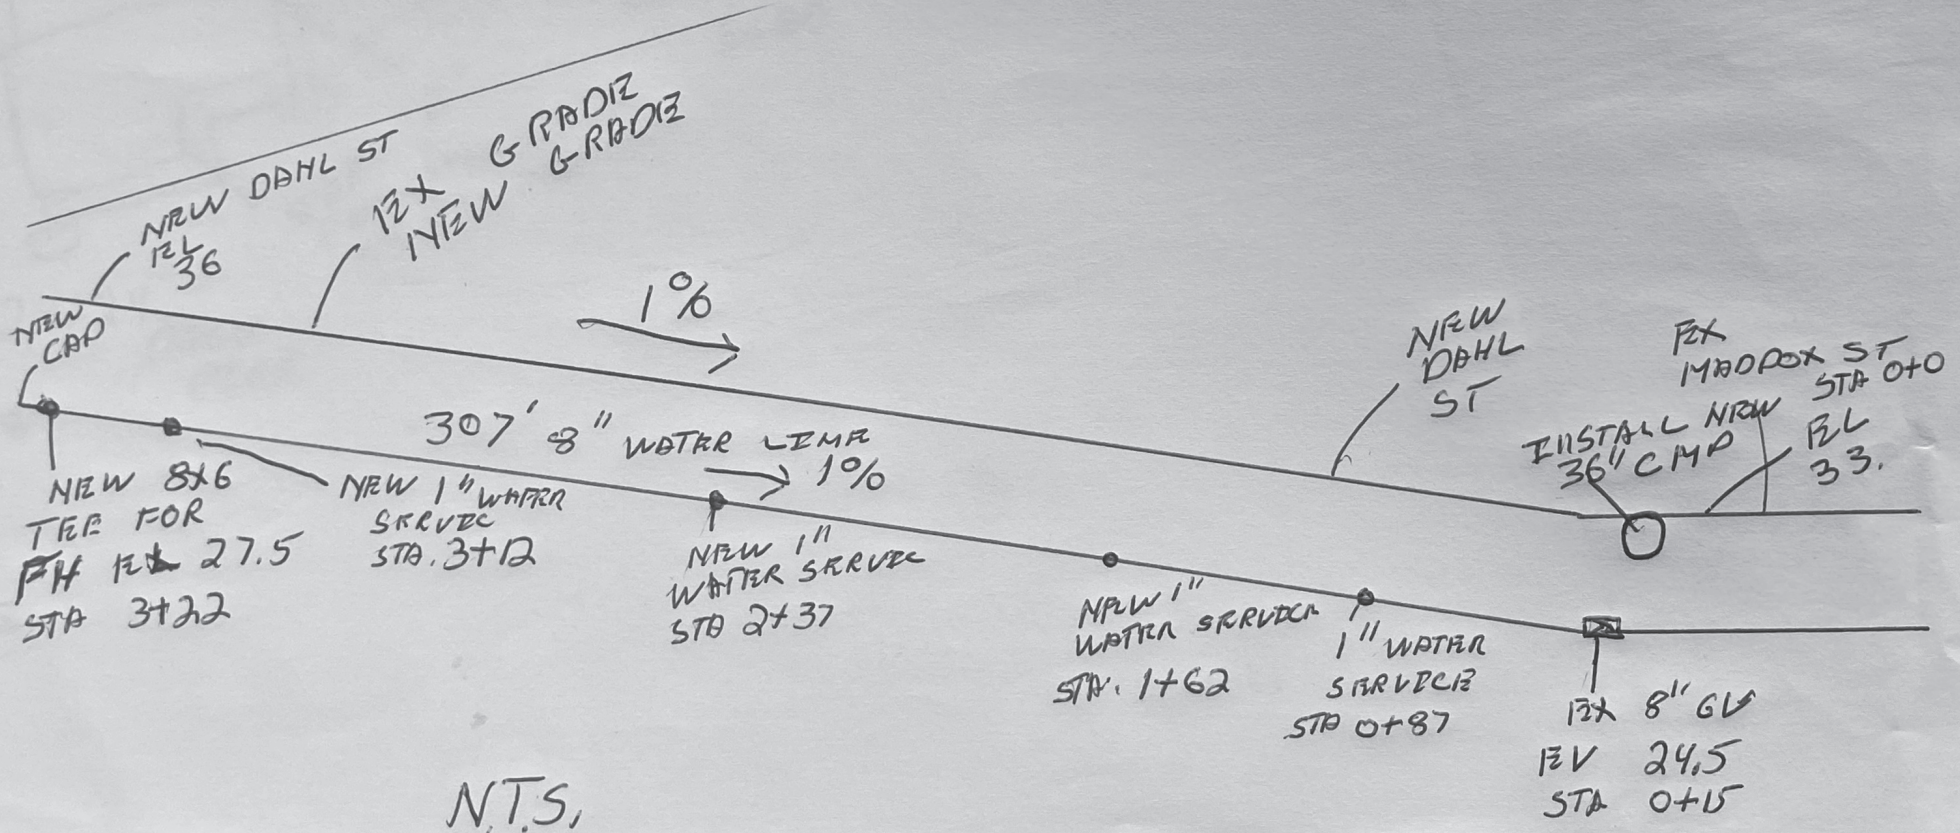 NEW DAHL ST
EL
36
EX GRADE
NEW GRADE
1%
NEW
CAP
NEW
DAHL
ST
EX
MADDOX ST
STA 0+0
EL
33.
INSTALL NEW
36" CMP
307' 8" WATER LINE
1%
NEW 8x6
TEE FOR
FH EL 27.5
STA 3+22
NEW 1" WATER
SERVIC
STA. 3+12
NEW 1"
WATER SERVIC
STA 2+37
NEW 1"
WATER SERVICE
STA. 1+62
1" WATER
SERVICE
STA 0+87
EX 8" GV
EV 24.5
STA 0+15
N.T.S.